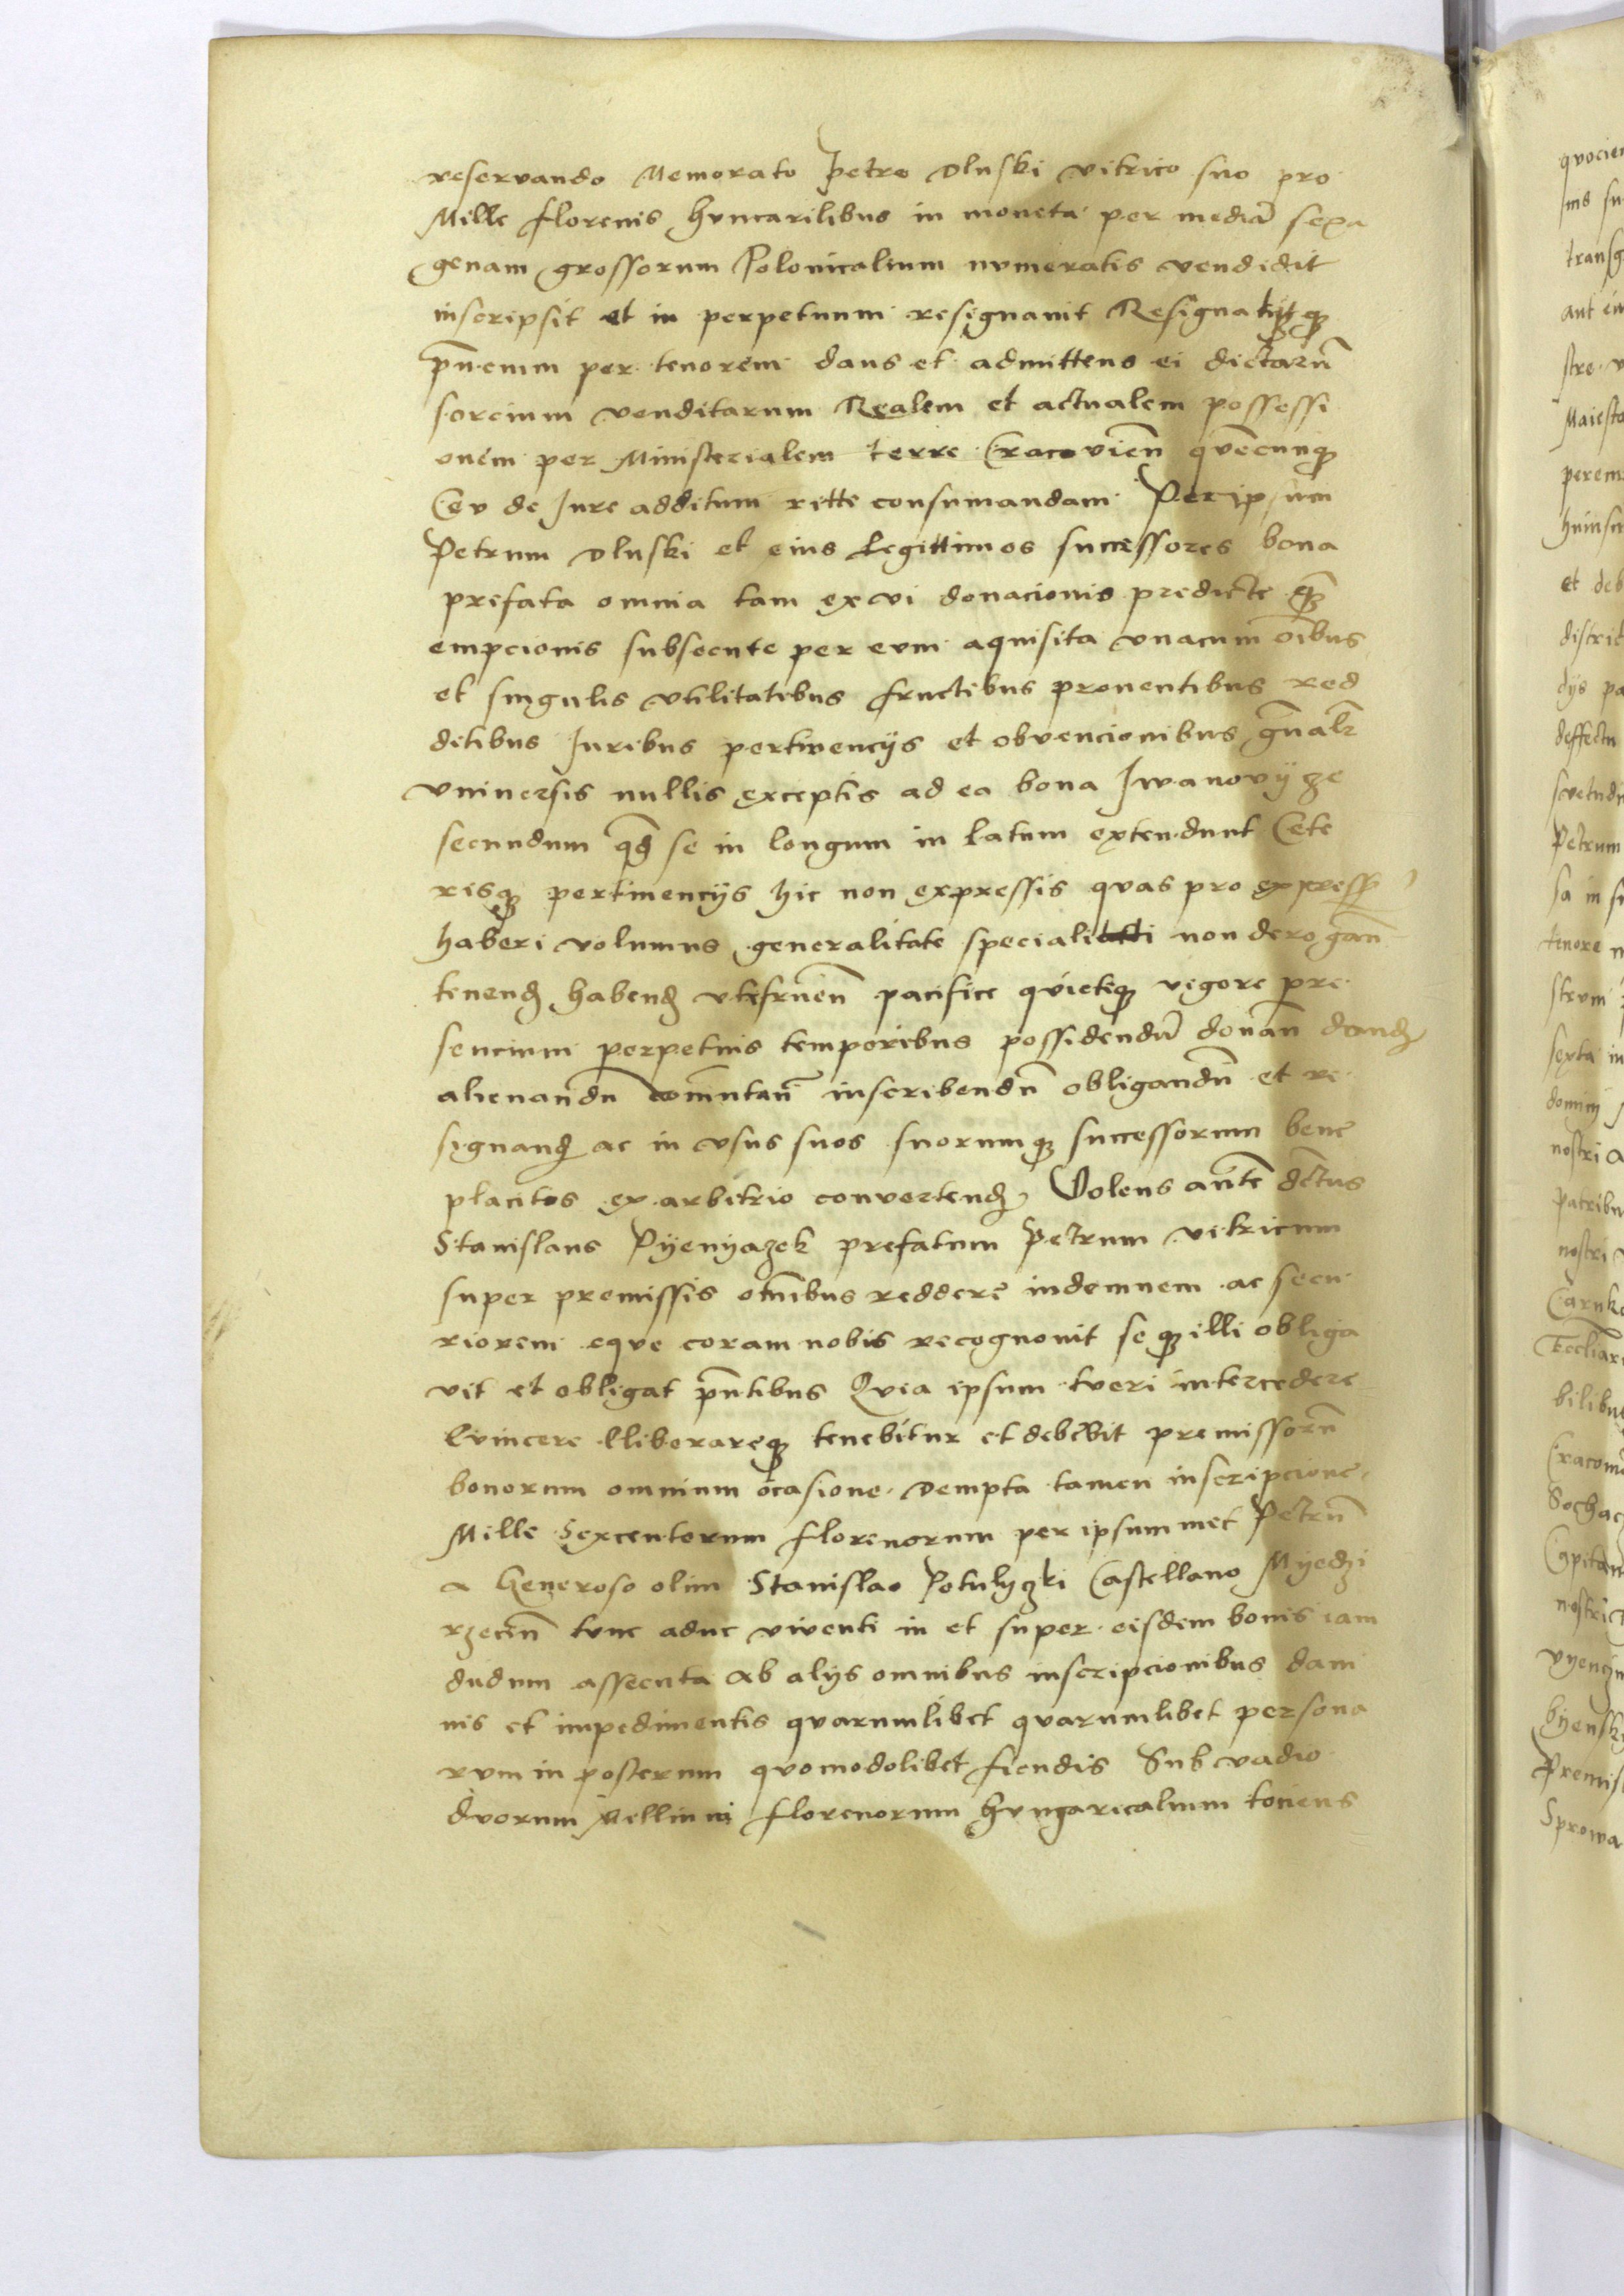 reservando Memorato Petro Dluski vitrico suo pro
Mille florenis Huncarilibus in moneta per mediā sexa
genam grossorum Polonicalium numeratis vendidit
inscripsit et in perpetuum resignavit Resignatqꝫ
pn̄cium per tenorem dans et admittens ei dictarū
sorcium venditarum Realem et actualem possessi
onem per Ministerialem terre Cracovien̄ quēcunqꝫ
Ceu de Jure additum ritte consumandam Per ipsum
Petrum Dluski et eius Legittimos successores bona
prefata omnia tam ex vi donacionis predicte qꝫ̄
empcionis subsecute per eum aquisita vnacum oībus
et singulis vtilitatibus fructibus proventibus red
ditibus Juribus pertinencijs et obvencionibus gn̄alr̄
vniversis nullis exceptis ad ea bona Iwanovijze
secundum qd̄ se in longum in latum extendunt Cete
risqꝫ pertinencijs hic non expressis quas pro expressꝭ
haberi volumus generalitate specialitatti non derogan̄
tenendꝭ habendꝭ vtifruen̄ pacifice quieteqꝫ vigore pre
sencium perpetuis temporibus possidendū donan̄ dandꝭ
alienandū commutan̄ inscribendū obligandū et re
signandꝭ ac in vsus suos suorumqꝫ successorum bene
placitos ex arbitrio convertendꝭ Volens an̄te dc̄tus
Stanislaus Pyenyazek prefatum Petrum vitricum
super premissis om̄ibus reddere indemnem ac secu
riorem eque coram nobis recognovit seqꝫ illi obliga
vit et obligat pn̄tibus Quia ipsum tueri intercedere
Evincere lliborareqꝫ tenebitur et debebit premissorū
bonorum omnium ocasione Dempta tamen inscripcione
Mille Sexcentorum florenorum per ipsummet Petrū
a Generoso olim Stanislao Potulyczki Castellano Myedzi
rzecen̄ tunc aduc viventi in et super eisdem bonis iam
dudum assecuta Ab alijs omnibus inscripcionibus dam
nis et impedimentis quarumlibet quarumlibet persona
rum in posterum quomodolibet fiendis Sub vadio
duorum Millium florenorum Hungaricalium tociens